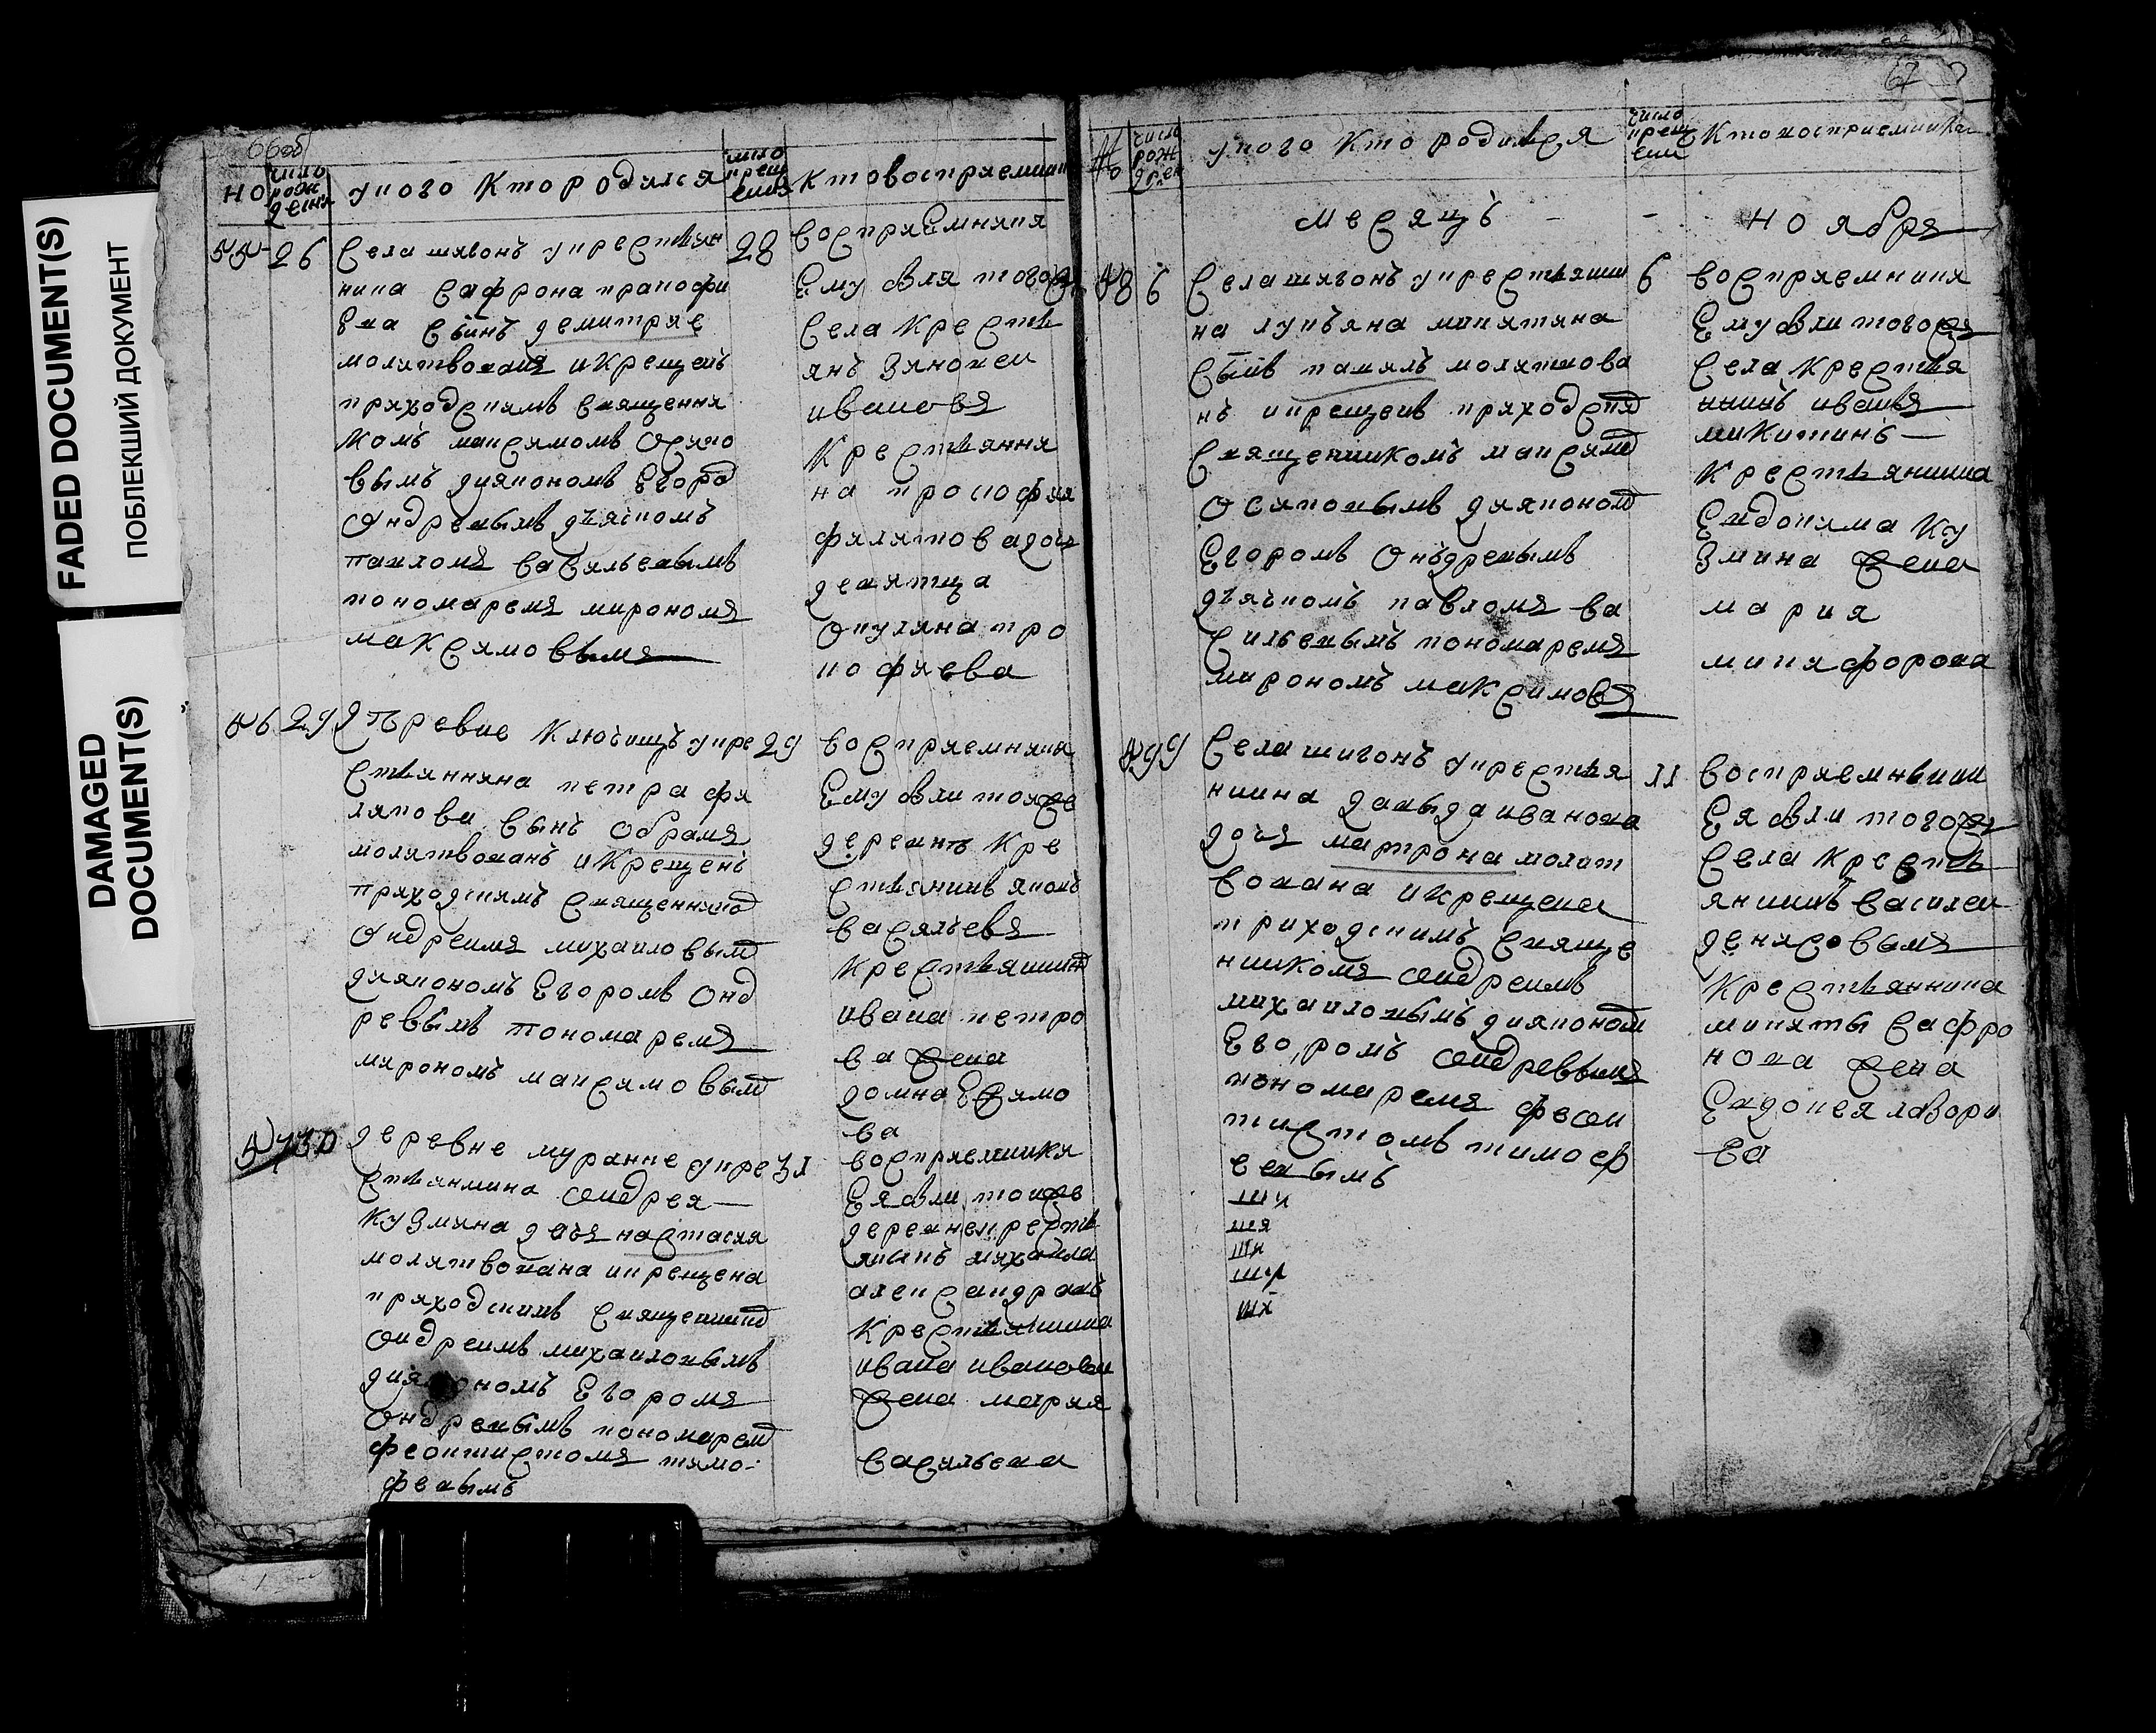 FADED DOCUMENT(S)
ПОБЛЕКШИЙ ДОКУМЕНТ
DAMAGED
DOCUMENT(S)
66об
но
число рождения
у кого кто родился
число крещения
кто восприемники
55 26
Села шигонъ у крестьян
28
нина сафрона прапофи
ева сынъ демитрие
молитвованъ и крещенъ
приходскимъ священни
комъ максимомъ осипо
вымъ дияконом егоро
ондревымъ дьячкомъ
павломъ васильевымъ
пономаремъ мирономъ
максимовымъ
восприемники
ему были того
села кресть
янъ зиновеи
ивановъ
крестьяни
на прокофия
филатова до
девятца
окулина про
кофиева
56 29
деревне ключищъ у кре
29
стьянина петра фи
липова сынъ обрамъ
молитвованъ и крещенъ
приходскимъ священнико
ондреимъ михаиловым
дияконом егоромъ онд
ревымъ пономаремъ
мирономъ максимовым
восприемники
ему были тоя же
деревни кре
стьянинъ яковъ
васильевъ
крестьянина
ивана петро
ва жена
домна ефимо
ва
57 30
деревне муранке у кре
31
стьянина ондрея
кузмина дочь настасия
молитвована и крещена
приходскимъ священико
ондреимъ михаиловымъ
дия ономъ егоромъ
ондревымъ пономарем
феоктистомъ тимо
февымъ
восприемники
ея были тои же
деревне кресть
янинъ михаила
александровъ
крестьянина
ивана иванова
жена мария
васильева
67
№
число рожден
у кого кто родился
число крещени
кто восприемники
месяцъ - - ноября
58 6
села шигонъ у крестьяни
6
на лукъяна микитина
сынъ павилъ молитвова
нъ и крещенъ приходски
священникомъ максимо
осиповымъ дияконом
егоромъ онъдревымъ
дьячкомъ павломъ ва
сильевымъ пономаремъ
мирономъ максимовъ
восприемники
ему были того
села крестья
нинъ иванъ
микитинъ
крестьянина
евдокима ку
змина жена
мария
микифорова
59 9
села шигонъ у крестья
11
нина давыда иванова
дочь матрона молит
вована и крещена
приходскимъ свяще
ником ондреимъ
михаиловымъ дияконом
егоромъ ондревымъ
пономаремъ феок
тистомъ тимоф
евымъ
восприемники
ея были того
села кресть
янинъ василеи
денисовымъ
крестьянина
микиты сафро
нова жена
евдокея лавори
ва